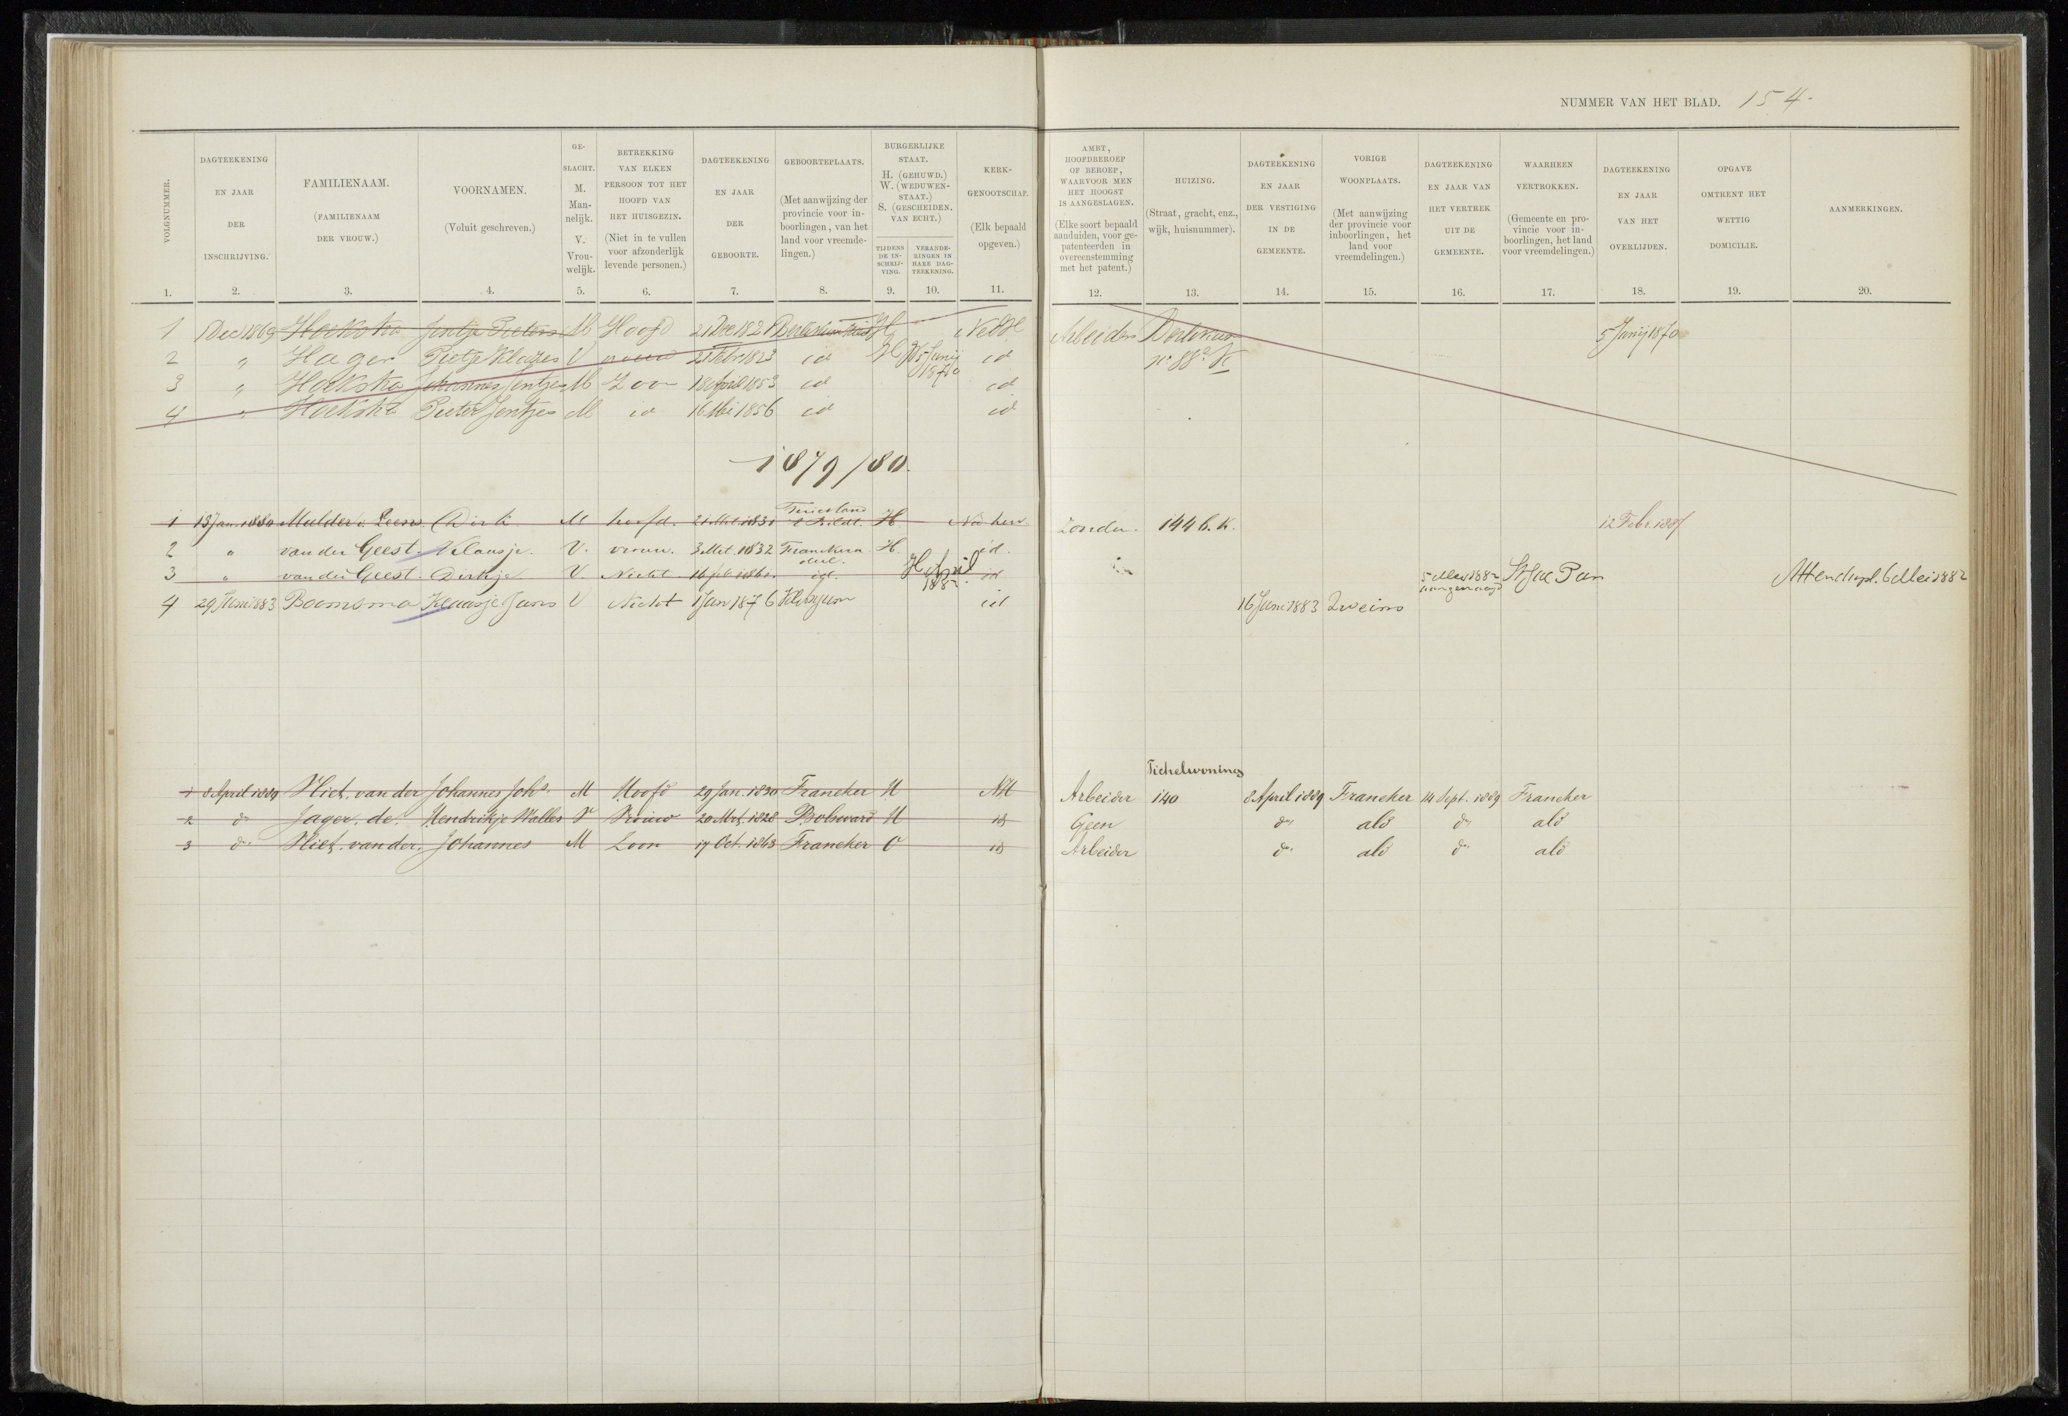 NUMMER VAN HET BLAD. 154.
VOLGNUMMER. 1.
DAGTEEKENING EN JAAR DER INSCHRIJVING. 2.
FAMILIENAAM. (FAMILIENAAM DER VROUW.) 3.
VOORNAMEN. (Voluit geschreven.) 4.
GE-SLACHT. M. Man-nelijk. V. Vrou-welijk. 5.
BETREKKING VAN ELKEN PERSOON TOT HET HOOFD VAN HET HUISGEZIN. (Niet in te vullen voor afzonderlijk levende personen.) 6.
DAGTEEKENING EN JAAR DER GEBOORTE. 7.
GEBOORTEPLAATS. (Met aanwijzing der provincie voor in-boorlingen, van het land voor vreemde-lingen.) 8.
BURGERLIJKE STAAT. H. (GEHUWD.) W. (WEDUWEN-STAAT.) S. (GESCHEIDEN. VAN ECHT.)
TIJDENS DE IN-SCHRIJ-VING. 9.
VERANDE-RINGEN IN HARE DAG-TEEKENING. 10.
KERK-GENOOTSCHAP. (Elk bepaald opgeven.) 11.
AMBT, HOOFDBEROEP OF BEROEP, WAARVOOR MEN HET HOOGST IS AANGESLAGEN. (Elke soort bepaald aanduiden, voor ge-patenteerden in overeenstemming met het patent.) 12.
HUIZING. (Straat, gracht, enz., wijk, huisnummer). 13.
DAGTEEKENING EN JAAR DER VESTIGING IN DE GEMEENTE. 14.
VORIGE WOONPLAATS. (Met aanwijzing der provincie voor inboorlingen, het land voor vreemdelingen.) 15.
DAGTEEKENING EN JAAR VAN HET VERTREK UIT DE GEMEENTE. 16.
WAARHEEN VERTROKKEN. (Gemeente en pro-vincie voor in-boorlingen, het land voor vreemdelingen.) 17.
DAGTEEKENING EN JAAR VAN HET OVERLIJDEN. 18.
OPGAVE OMTRENT HET WETTIG DOMICILIE. 19.
AANMERKINGEN. 20.
1 Dec 1869 Hoekstra Jentje Pieters M Hoofd 21 Dec 1821 H Ned H Arbeider 5 Junij 1870
2 " Hager Pietje Klazes V vrouw 1823 id W 5 Junij 1870 id no 88a K
3 " Hoekstra Johannes Jentjes M Zoon 18 April 1853 id id
4 " Hoekstra Pieter Jentjes M id 16 Mei 1856 id id
1879/80.
1 13 Jan. 1880 Mulder Dirk M hoofd. 1831 Friesland H Ned herv. Zonder. 144 b. K. 12 Febr. 1887
2 " van der Geest. Klaasje. V. vrouw. 3 1832 H. id.
3 " van der Geest. Dirkje V. Nicht id. H April 1882. id 5 1882 St Jac Par 6 Mei 1882
4 29 Juni 1883 Boomsma Klaasje Jans V Nicht 1 Jan 1876 id 16 Juni 1883 Zweins
Tichelwoning
1 8 April 1889 Hiet. van der Johannes Johs. M Hoofd 29 Jan. 1830 Franeker H NH Arbeider 140 8 April 1889 Franeker 14 Sept. 1889 Franeker
2 do Jager. de. Hendrikje Walles V Vrouw 20 Mrt. 1828 Bolsward H id Geen do. ald do. ald
3 do. Hiet. van der. Johannes M Zoon 17 Oct. 1863 Franeker O id Arbeider do. ald do. ald